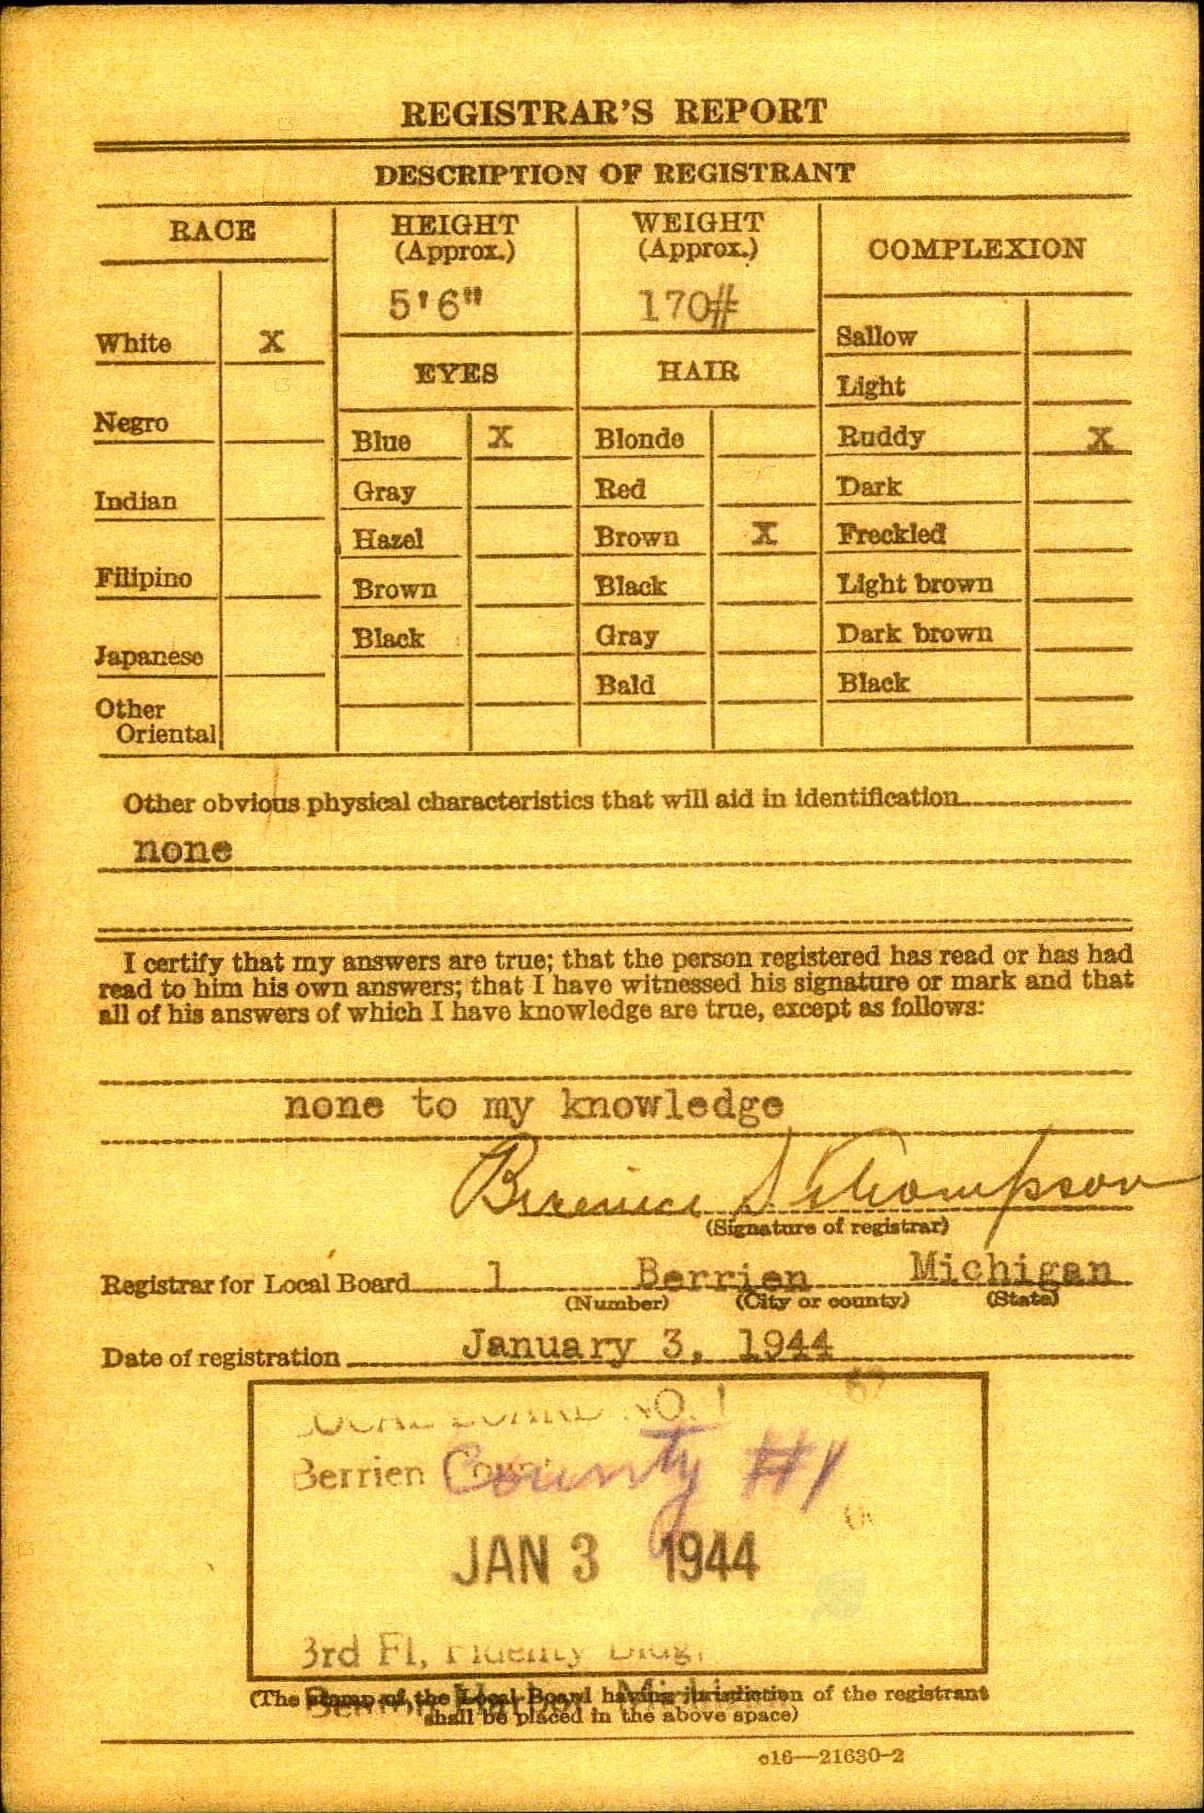 REGISTRAR'S REPORT
DESCRIPTION OF REGISTRANT
RACE
White X
Negro
Indian
Filipino
Japanese
Other
Oriental
HEIGHT
(Approx.)
5'6"
EYES
Blue X
Gray
Hazel
Brown
Black
WEIGHT
(Approx.)
170#
HAIR
Blonde
Red
Brown X
Black
Gray
Bald
COMPLEXION
Sallow
Light
Ruddy X
Dark
Freckled
Light brown
Dark brown
Black
Other obvious physical characteristics that will aid in identification
none
I certify that my answers are true; that the person registered has read or has had
read to him his own answers; that I have witnessed his signature or mark and that
all of his answers of which I have knowledge are true, except as follows:
none to my knowledge
Berenice S. Thompson
(Signature of registrar)
Registrar for Local Board 1 Berrien Michigan
(Number) (City or county) (State)
Date of registration January 3, 1944
LOCAL BOARD NO. 1
Berrien County #1
JAN 3 1944
3rd Fl, Fidelity Bldg.
(The stamp of the Local Board having jurisdiction of the registrant
shall be placed in the above space)
c16—21630-2